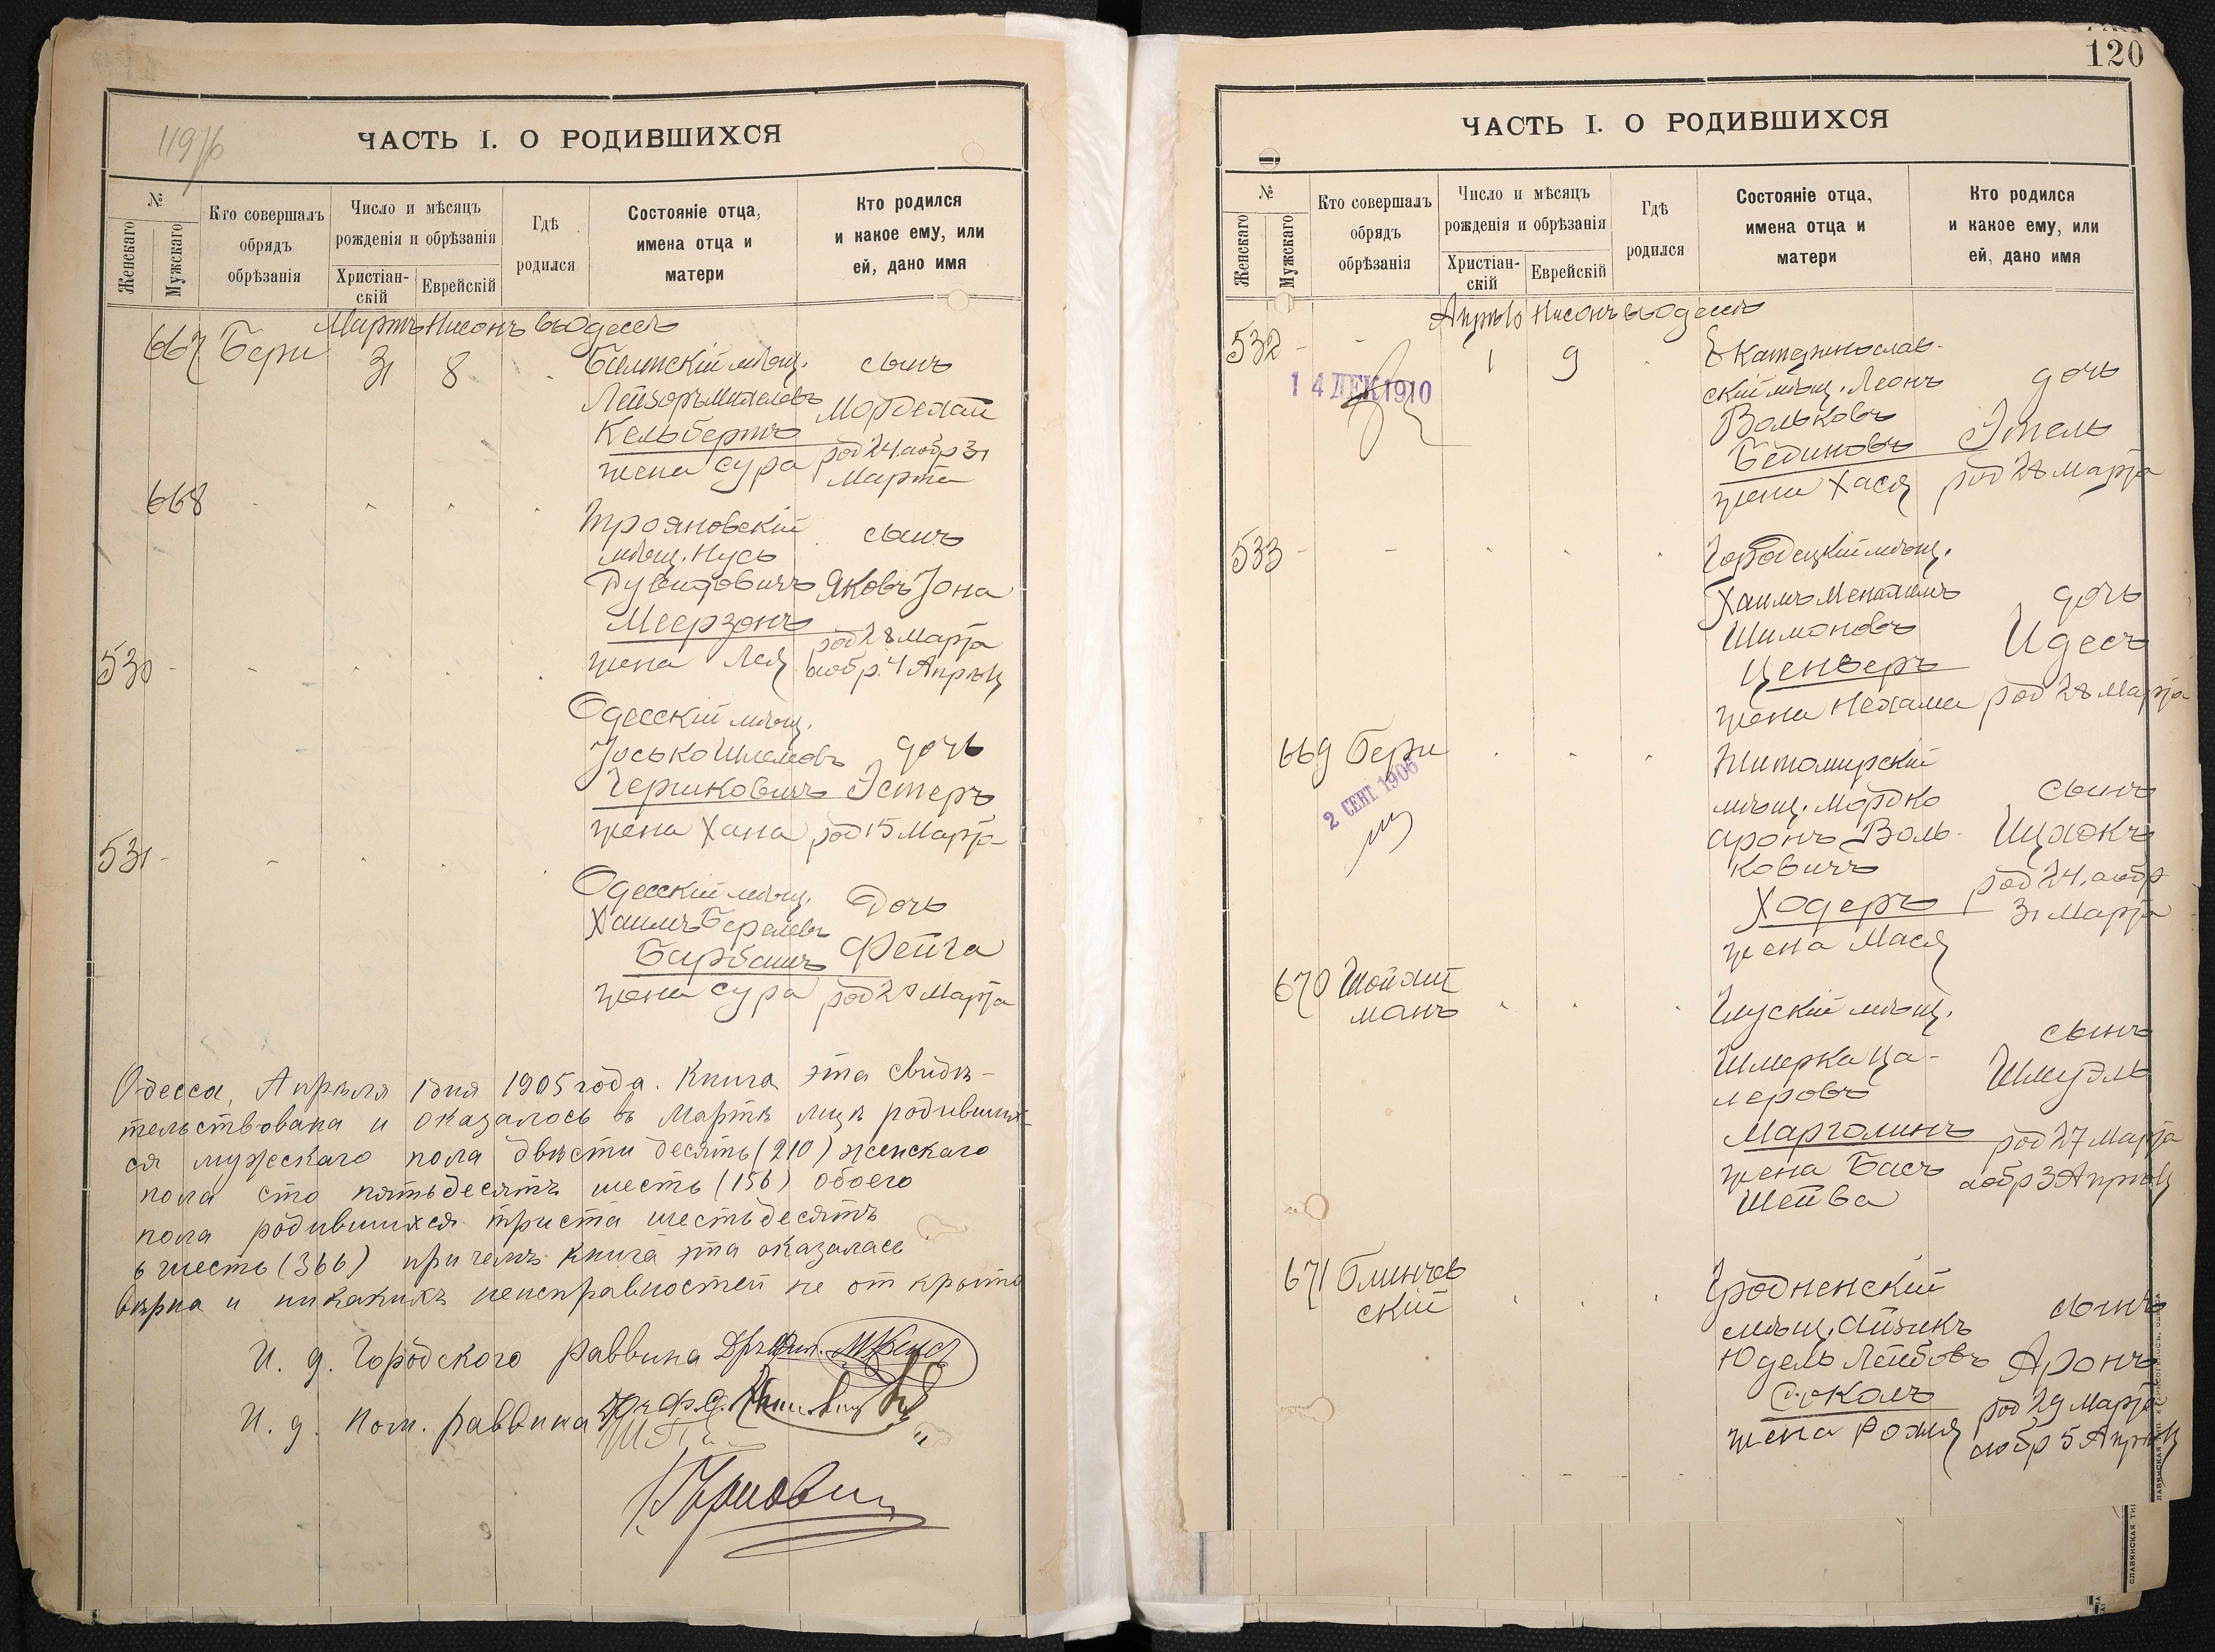 119 об
ЧАСТЬ I. О РОДИВШИХСЯ
№
Женскаго
Мужскаго
Кто совершалъ
обрядъ
обрѣзанія
Число и мѣсяцъ
рожденія и обрѣзанія
Христіан-
скій
Еврейскій
Гдѣ
родился
Состояніе отца,
имена отца и
матери
Кто родился
и какое ему, или
ей, дано имя
Мартъ Нисонъ въ Одессѣ
667 Бери 31 8
Балтскій мѣщ. сынъ
Лейзоръ Михелевъ Мордехай
Кельбертъ
жена Сура
род 24 а обр 31
Марта
668
Трояновскій
мѣщ. Нусь
Дувидовичъ
Меерзонъ
жена Лея
сынъ
Яковъ Іона
род 28 Марта
а обр. 4 Апрѣля
530
Одесскій мѣщ.
Іосько Шлемовъ
жена Хана
дочь
Эстеръ
род 15 Марта
531
Одесскій мѣщ.
Хаимъ Берелевъ
Барбашъ
жена Сура
Дочь
Фейга
род 20 Марта
Одесса, Апрѣля 1 дня 1905 года. Книга эта свидѣ-
тельствована и оказалось въ Мартѣ лицъ родивших-
ся мужескаго пола двѣсти десять (210) женскаго
пола сто пятьдесятъ шесть (156) обоего
пола родившихся триста шестьдесятъ
шесть (366) причемъ книга эта оказалась
вѣрна и никакихъ неисправностей не открыто
И. д. Городского раввина
И. д. Пом. раввина
120
ЧАСТЬ I. О РОДИВШИХСЯ
№
Женскаго
Мужскаго
Кто совершалъ
обрядъ
обрѣзанія
Число и мѣсяцъ
рожденія и обрѣзанія
Христіан-
скій
Еврейскій
Гдѣ
родился
Состояніе отца,
имена отца и
матери
Кто родился
и какое ему, или
ей, дано имя
Апрѣль Нисонъ въ Одессѣ
532 - - 1 9
14 ДЕК 1910
Екатеринослав-
скій мѣщ. Леонъ
Вольковъ
Бединовъ
жена Хася
дочь
Этель
род 28 Марта
533 - -
Городецкій мѣщ.
Хаимъ Менахемъ
Шимоновъ
жена Нехама
дочь
Идесъ
род 28 Марта
669 Бери
2 СЕНТ 1906
Житомирскій
мѣщ. Мордко
Аронъ Воль-
ковичъ
Ходеръ
жена Мася
сынъ
Ицхокъ
род 24, а обр
31 Марта
670 Шойхит
манъ
Глускій мѣщ.
Шмерка Ца-
леровъ
Марголинъ
жена Бася
Шейва
сынъ
Шмуэль
род 27 Марта
а обр 3 Апрѣля
671 Блинчев
скій
Гродненскій
мѣщ. Айзикъ
Юдель Лейбовъ
Соколъ
жена Рохля
сынъ
Аронъ
род 29 Марта
а обр 5 Апрѣля